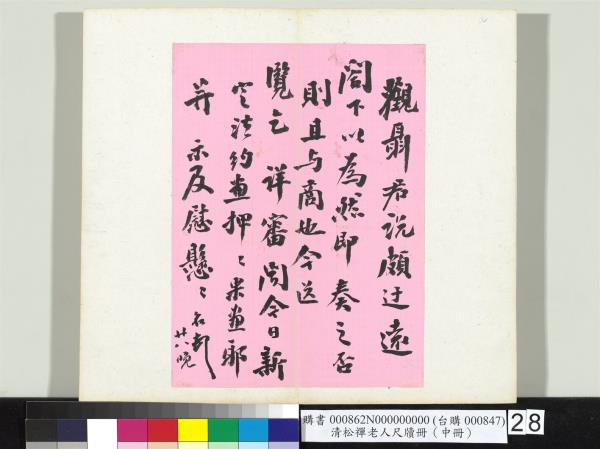 觀聶君說頗迂遠
閣下以為然即奏之否
則且与商也今送
覽乞詳審閱今日新
定法約畫押〻果畫耶
并示及慰懸〻名
廿八晚
購書 000862N000000000 (台購 000847)
清松禪老人尺牘冊（中冊）
28